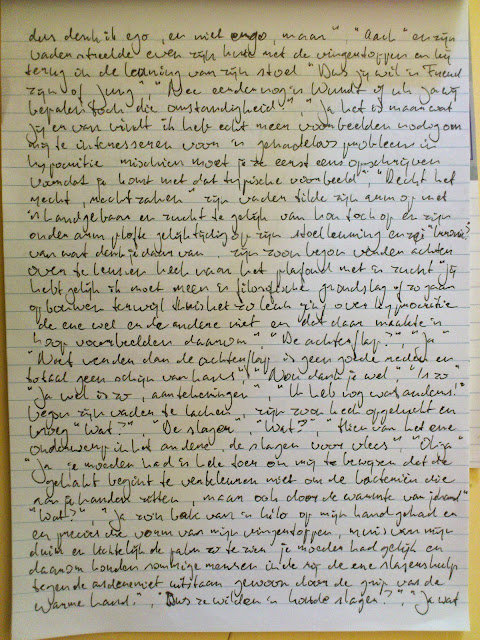 dus denk ik ego, en niet ergo, maar", "Aach" en zijn
vader streelde even zijn kin met de vingertoppen en hij
terug in de leuning van zijn stoel "Dus jij wil 'n Freud
zijn of Jung", "Nee eerder nog 'n Wundt of uh ja wij
bepalen toch die omstandigheid", "Ja het is maar wat
jij er van vindt ik heb echt meer voorbeelden nodig om
mij te interesseren voor 'n probleem in
hypocrisie misschien moet je ze eerst eens opschrijven
voordat je komt met dat typische voorbeeld", "Recht het
recht, recht zijn vader tilde zijn arm op met
'n handgebaar en zucht te gelijk van hou toch op en zijn
onder arm plofte gelijktijdig op zijn stoelleuning en zei
van wat denk je daar van, zijn zoon begon verder achter
over te leunen keek naar het plafond met 'n zucht "jij
hebt gelijk ik moet meer 'n filosofische grondslag of zo gaan
opbouwen terwijl thuis het zo leuk zijn over hypocrisie
de ene wel en de andere niet en dat daar maakte 'n
hoop voorbeelden daarom" "De achterflap?", "Ja"
"Noot verder dan de achterflap is geen goede reden en
totaal geen schijn van kans", "Nou dank je wel", "Is zo"
"Ja wel is zo, aantekeningen", "Ik heb nog wat anders!"
begon zijn vader te lachen, zijn zoon keek opgelucht en
vroeg "Wat?" "De slager", "Wat?", "Hier van het ene
onderwerp in het andere, de slager voor vlees", "Oh ja"
"Ja je moeder had 'n hele toer om mij te bewijzen dat de
gehakt begint te verkleuren niet om de bacteriën die
aan je handen zitten, maar ook door de warmte van je hand"
"Wat?", "Ja zo'n bak van 'n kilo op mijn hand gehad en
en precies die vorm van mijn vingertoppen, muis van mijn
duim en de palm zo te zien je moeder had gelijk en
daarom konden sommige mensen in de rij de ene slagershulp
tegen de andere niet uitstaan gewoon door de grip van de
warme hand.", "Dus ze wilden 'n koude slager?", "Ja wat